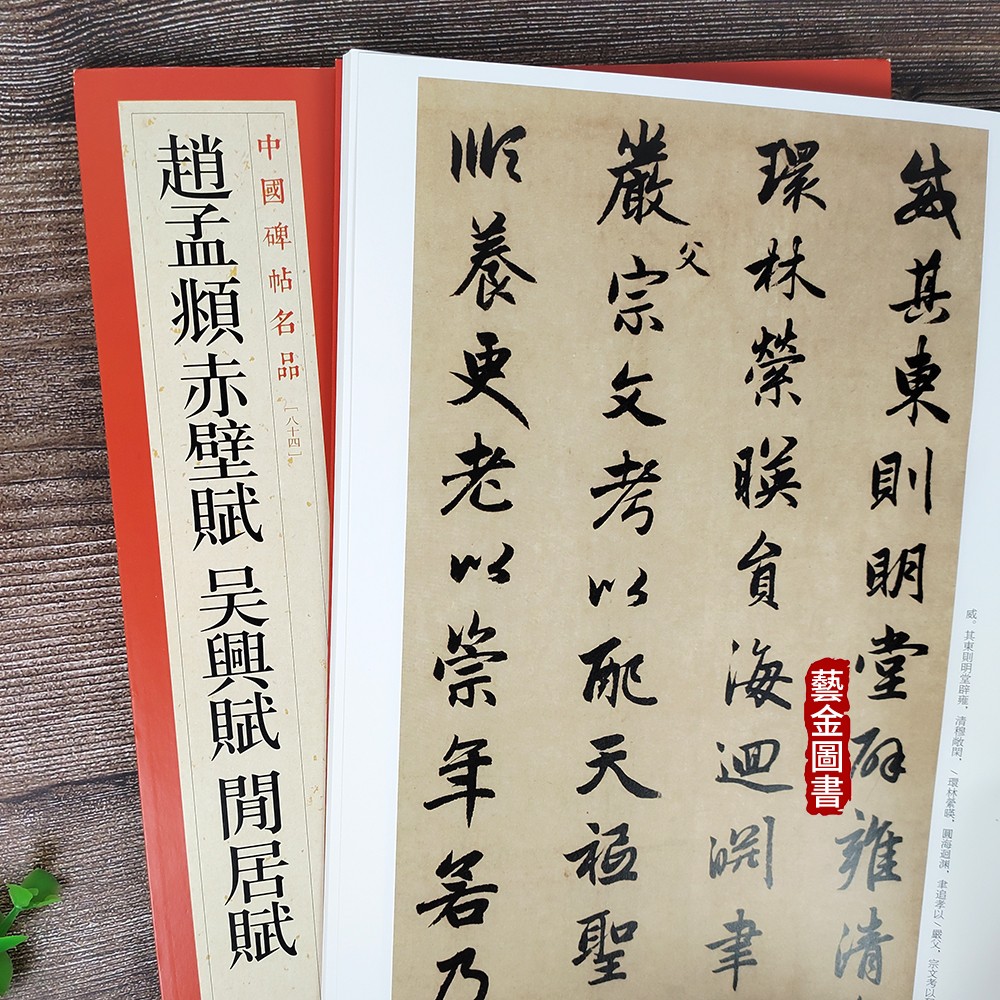 中國碑帖名品
[八十四]
趙孟頫赤壁賦 吴興賦 閒居賦
威其東則明堂辟雍清
環林縈暎員海迴淵聿
嚴父宗文考以配天祗聖
順養更老以崇年若乃
威。其東則明堂辟雍，清穆敞閑，/環林縈暎，圓海迴淵，聿追孝以/嚴父，宗文考以
藝金圖書